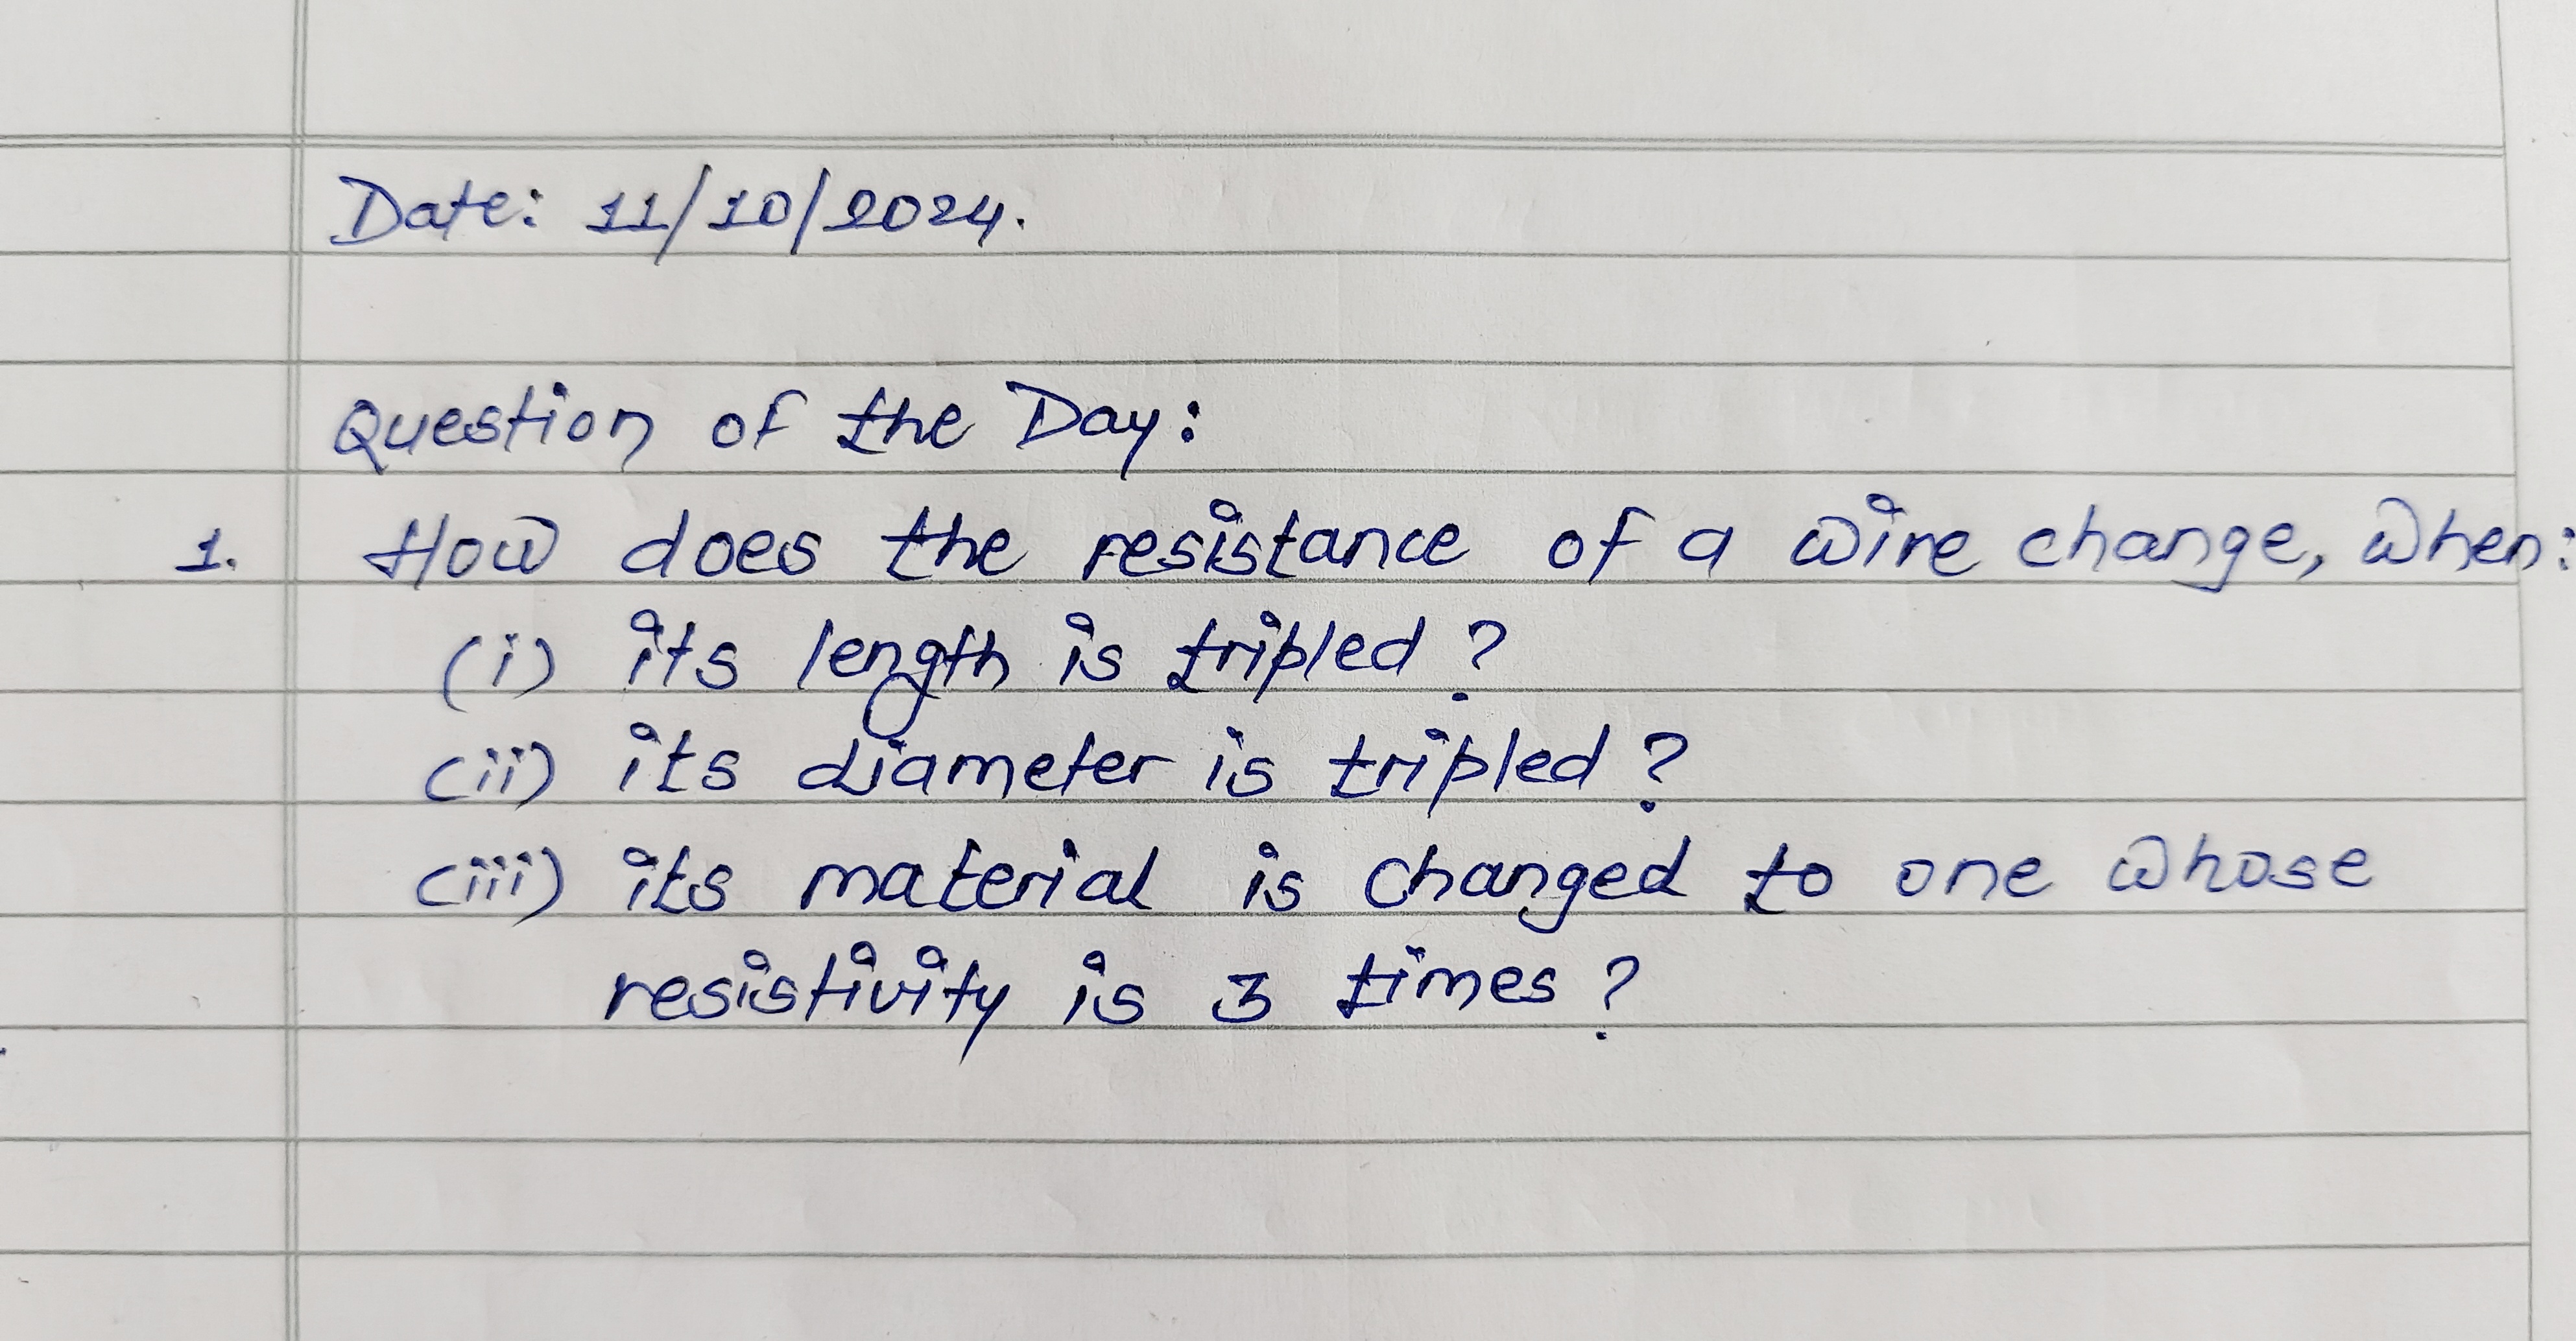 Date: 11/10/2024.
Question of the Day:
1. How does the resistance of a wire change, when:
(i) its length is tripled?
(ii) its diameter is tripled?
(iii) its material is changed to one whose
resistivity is 3 times?